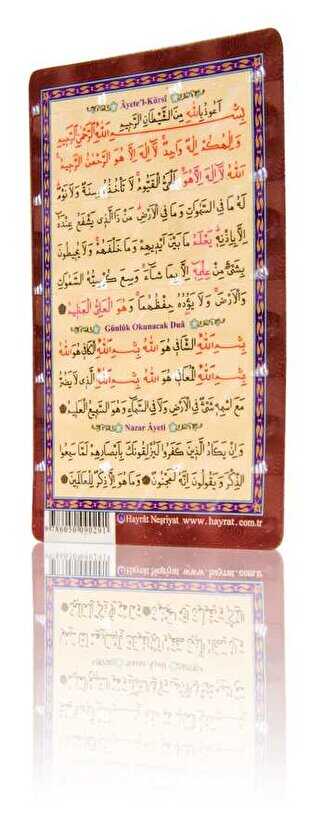 Âyete'l-Kürsî
اَعُوذُ بِاللّٰهِ مِنَ الشَّيْطَانِ الرَّجِيمِ
بِسْمِ اللّٰهِ الرَّحْمٰنِ الرَّحِيمِ
وَاِلٰهُكُمْ اِلٰهٌ وَاحِدٌ لَٓا اِلٰهَ اِلَّا هُوَ الرَّحْمٰنُ الرَّحِيمُ
اَللّٰهُ لَٓا اِلٰهَ اِلَّا هُوَ اَلْحَىُّ الْقَيُّومُ لَا تَأْخُذُهُ سِنَةٌ وَلَا نَوْمٌ
لَهُ مَا فِى السَّمٰوَاتِ وَمَا فِى الْاَرْضِ مَنْ ذَا الَّذِى يَشْفَعُ عِنْدَهُٓ
اِلَّا بِاِذْنِهِ يَعْلَمُ مَا بَيْنَ اَيْدِيهِمْ وَمَا خَلْفَهُمْ وَلَا يُحِيطُونَ
بِشَىْءٍ مِنْ عِلْمِهِٓ اِلَّا بِمَا شَٓاءَ وَسِعَ كُرْسِيُّهُ السَّمٰوَاتِ
وَالْاَرْضَ وَلَا يَؤُدُهُ حِفْظُهُمَا وَهُوَ الْعَلِىُّ الْعَظِيمُ
Günlük Okunacak Duâ
بِسْمِ اللّٰهِ الشَّافِى هُوَ اللّٰهُ بِسْمِ اللّٰهِ الْكَافِى هُوَ اللّٰهُ
بِسْمِ اللّٰهِ الْمُعَافِى هُوَ اللّٰهُ بِسْمِ اللّٰهِ الَّذِى لَا يَضُرُّ
مَعَ اسْمِهِ شَىْءٌ فِى الْاَرْضِ وَلَا فِى السَّمَٓاءِ وَهُوَ السَّمِيعُ الْعَلِيمُ
Nazar Âyeti
وَاِنْ يَكَادُ الَّذِينَ كَفَرُوا لَيُزْلِقُونَكَ بِاَبْصَارِهِمْ لَمَّا سَمِعُوا
الذِّكْرَ وَيَقُولُونَ اِنَّهُ لَمَجْنُونٌ وَمَا هُوَ اِلَّا ذِكْرٌ لِلْعَالَمِينَ
Hayrât Neşriyat www.hayrat.com.tr